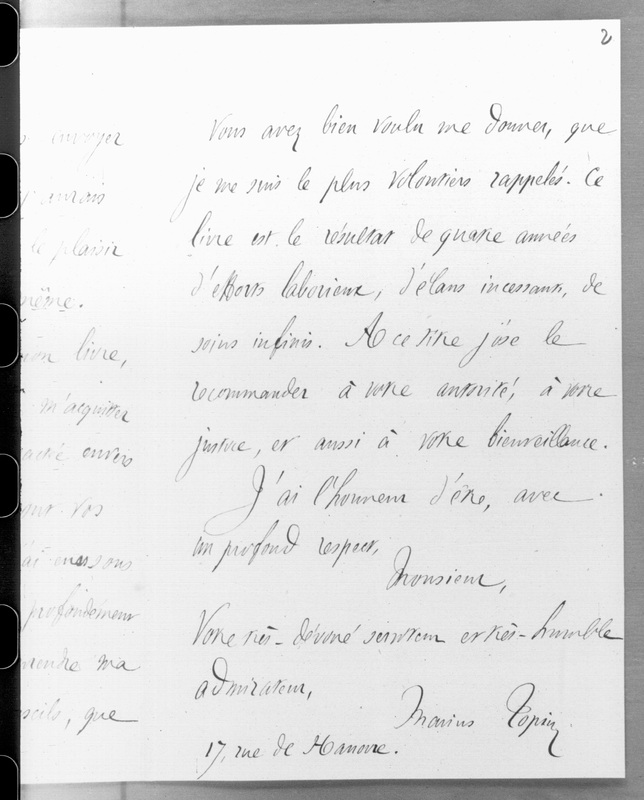 2
envoyer
aurais
le plaisir
même.
mon livre,
m'acquitter
envers
sur vos
profondément
rendre ma
que
Vous avez bien voulu me donner, que
je me suis le plus volontiers rappelés. Ce
livre est le résultat de quatre années
d'efforts laborieux, d'élans incessants, de
soins infinis. A ce titre j'ose le
recommander à votre autorité, à votre
justice, et aussi à votre bienveillance.
J'ai l'honneur d'être, avec
un profond respect,
Monsieur,
Votre très-dévoué serviteur et très-humble
admirateur,
Marius Topin
17, rue de Hanovre.